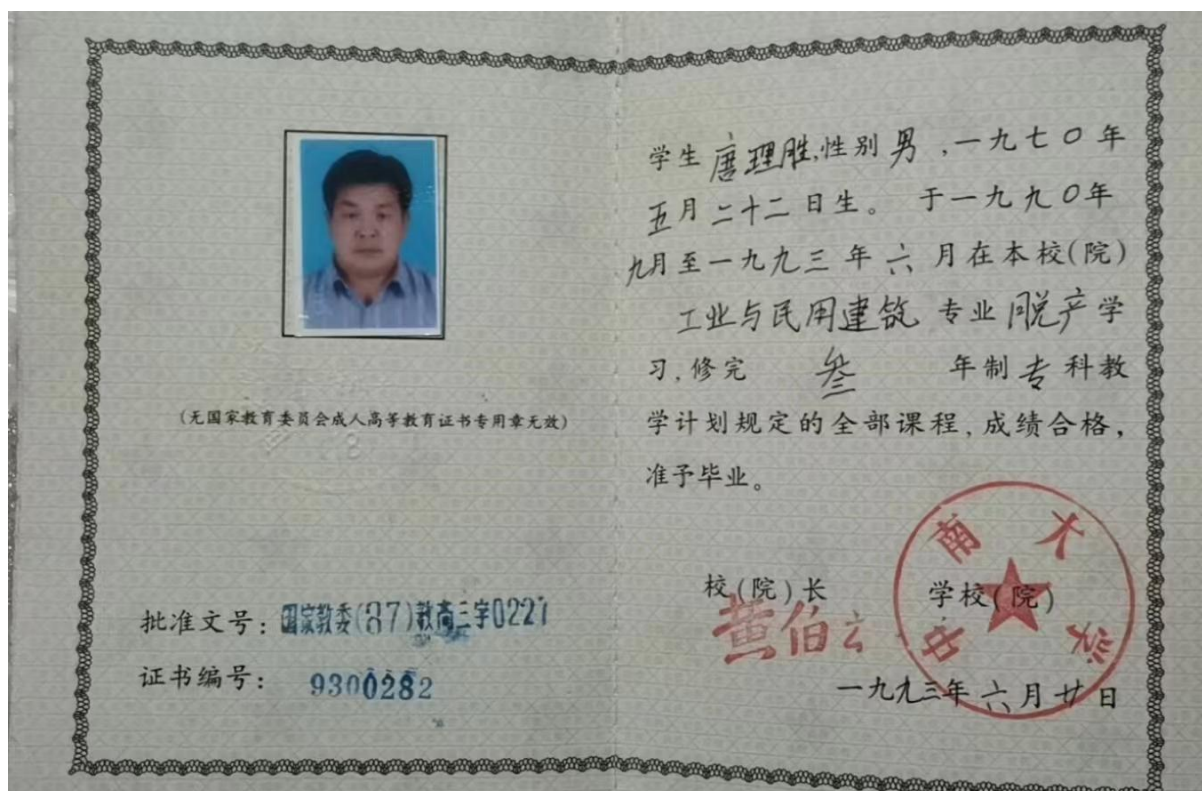 (无国家教育委员会成人高等教育证书专用章无效)
批准文号：国家教委(87)教高三字0227
证书编号： 9300282
学生唐理胜,性别男,一九七〇年
五月二十二日生。 于一九九〇年
九月至一九九三年六月在本校(院)
工业与民用建筑 专业脱产学
习,修完 叁 年制专科教
学计划规定的全部课程,成绩合格,
准予毕业。
校(院)长 学校(院)
黄伯云
中南大学
一九九三年六月廿日